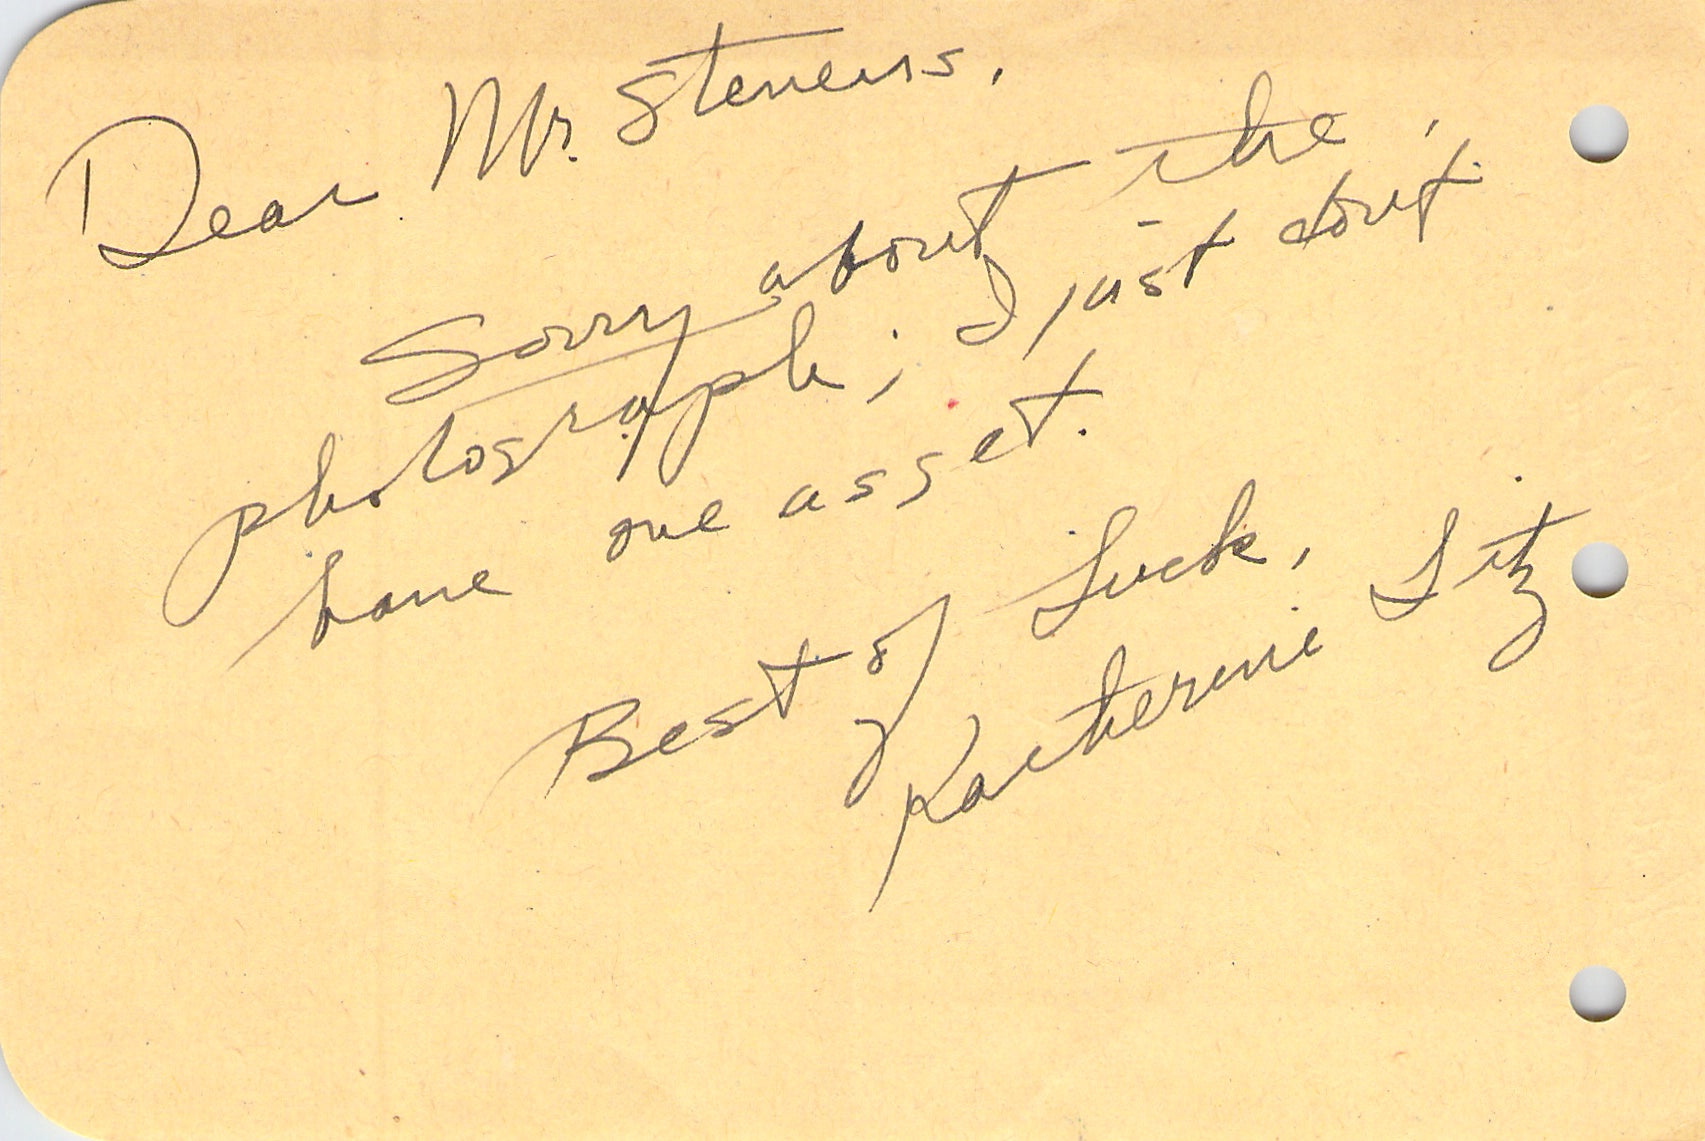 Dear Mr. Stevens,
Sorry about the
photograph; I just don't
have one as yet.
Best of Luck,
Katherine Litz